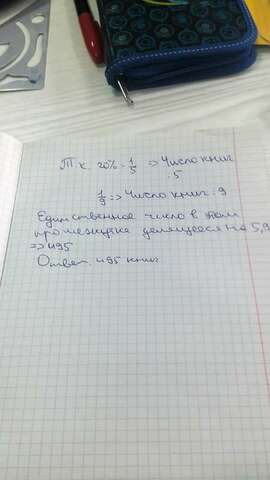 Т к. 20% = 1/5 => Число книг
: 5
1/9 => Число книг : 9
Единственное число в этом
промежутке делящееся на 5,9
=> 495
Ответ 495 книг